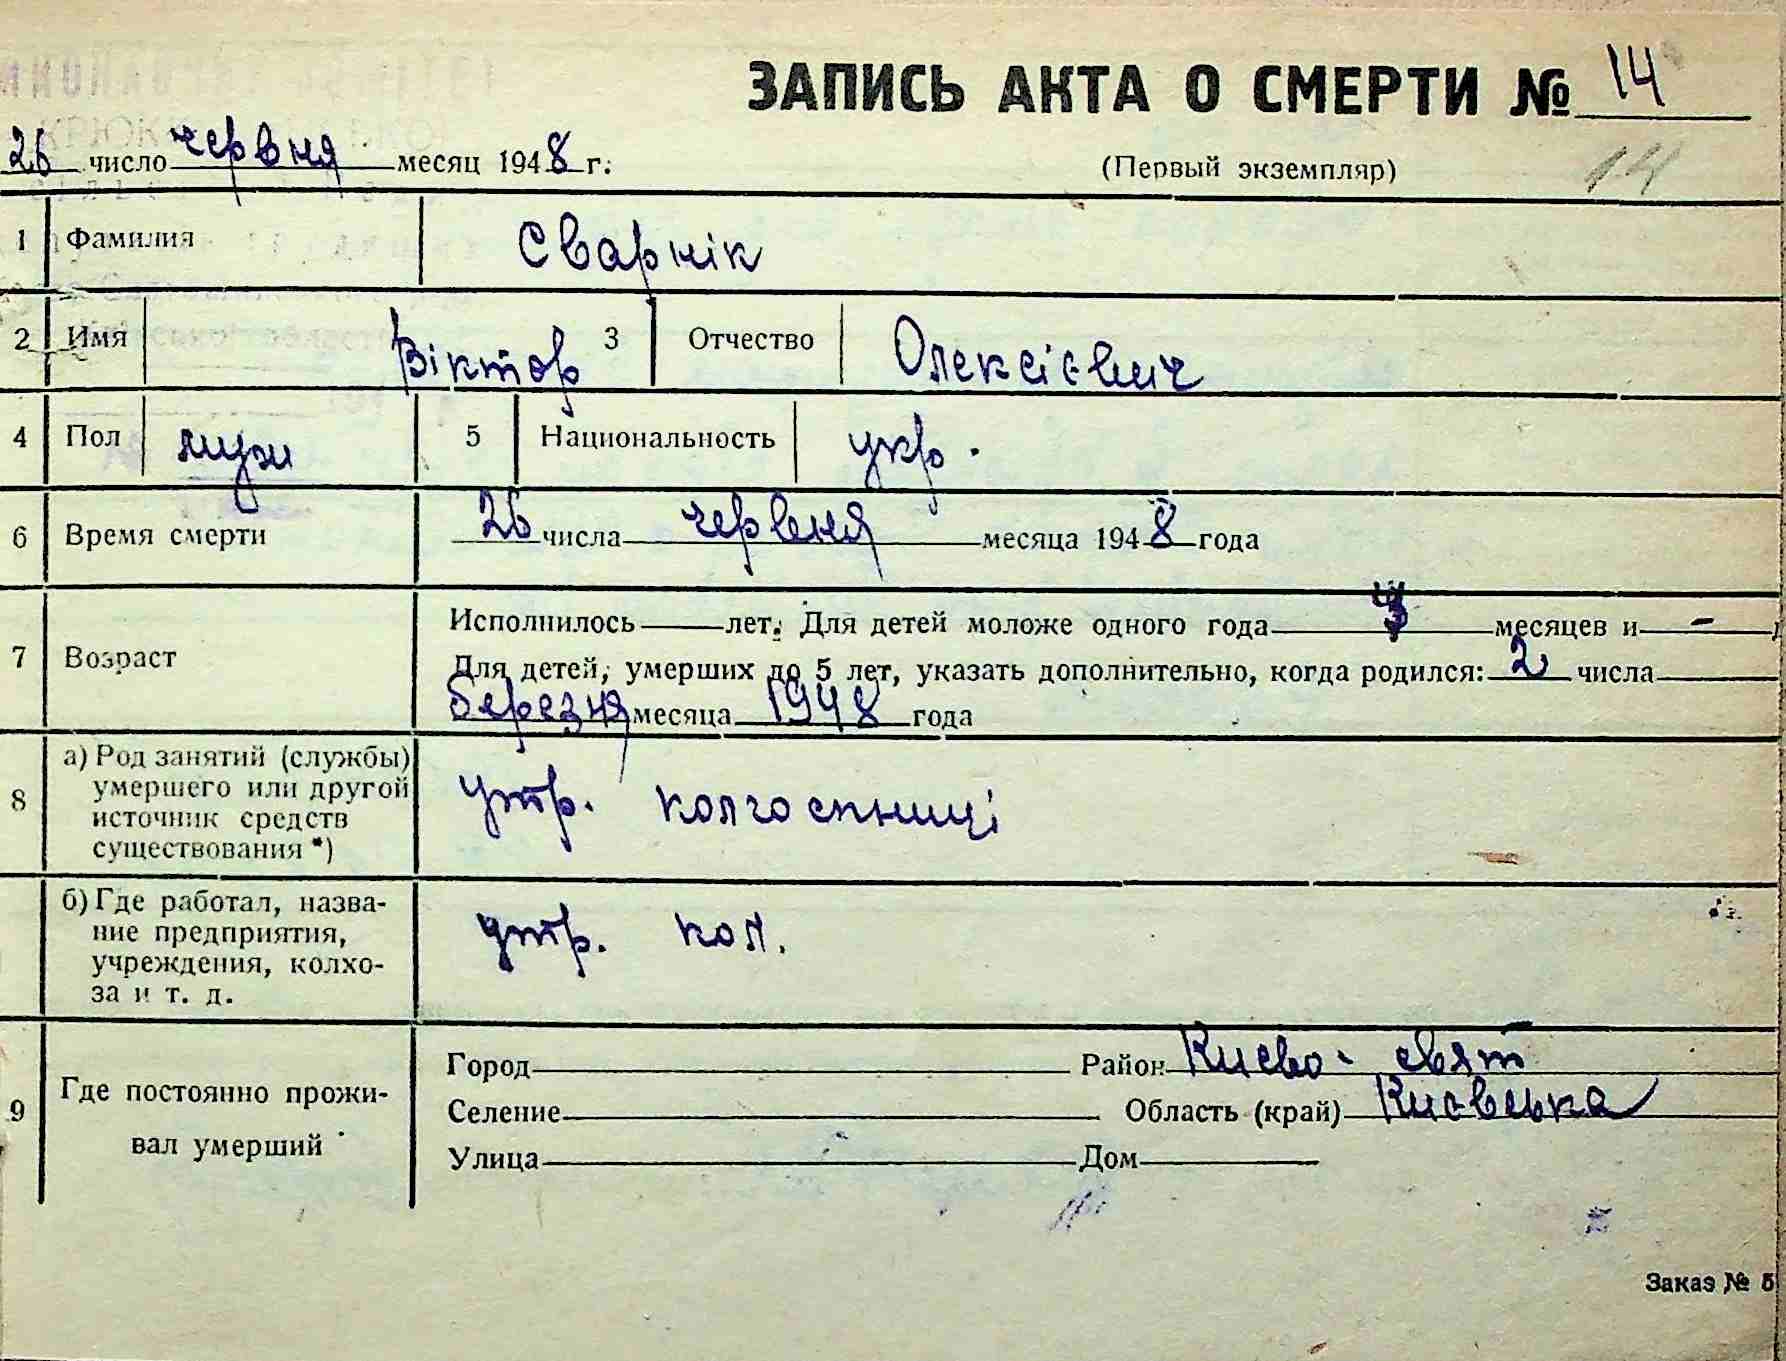 ЗАПИСЬ АКТА О СМЕРТИ № 14
26 число червня месяц 1948 г.
(Первый экземпляр) 14
1 Фамилия Сварнік
2 Имя Віктор 3 Отчество Олексієвич
4 Пол муж 5 Национальность укр.
6 Время смерти 26 числа червня месяца 1948 года
7 Возраст Исполнилось — лет. Для детей моложе одного года месяцев и -
Для детей, умерших до 5 лет, указать дополнительно, когда родился: 2 числа
березня месяца 1948 года
8 а) Род занятий (службы)
умершего или другой
источник средств
существования *)
утр. колгоспниці
б) Где работал, назва-
ние предприятия,
учреждения, колхо-
за и т. д.
утр. кол.
9 Где постоянно прожи-
вал умерший
Город Район Киево-свят
Селение Область (край) Києвська
Улица Дом
Заказ № 5